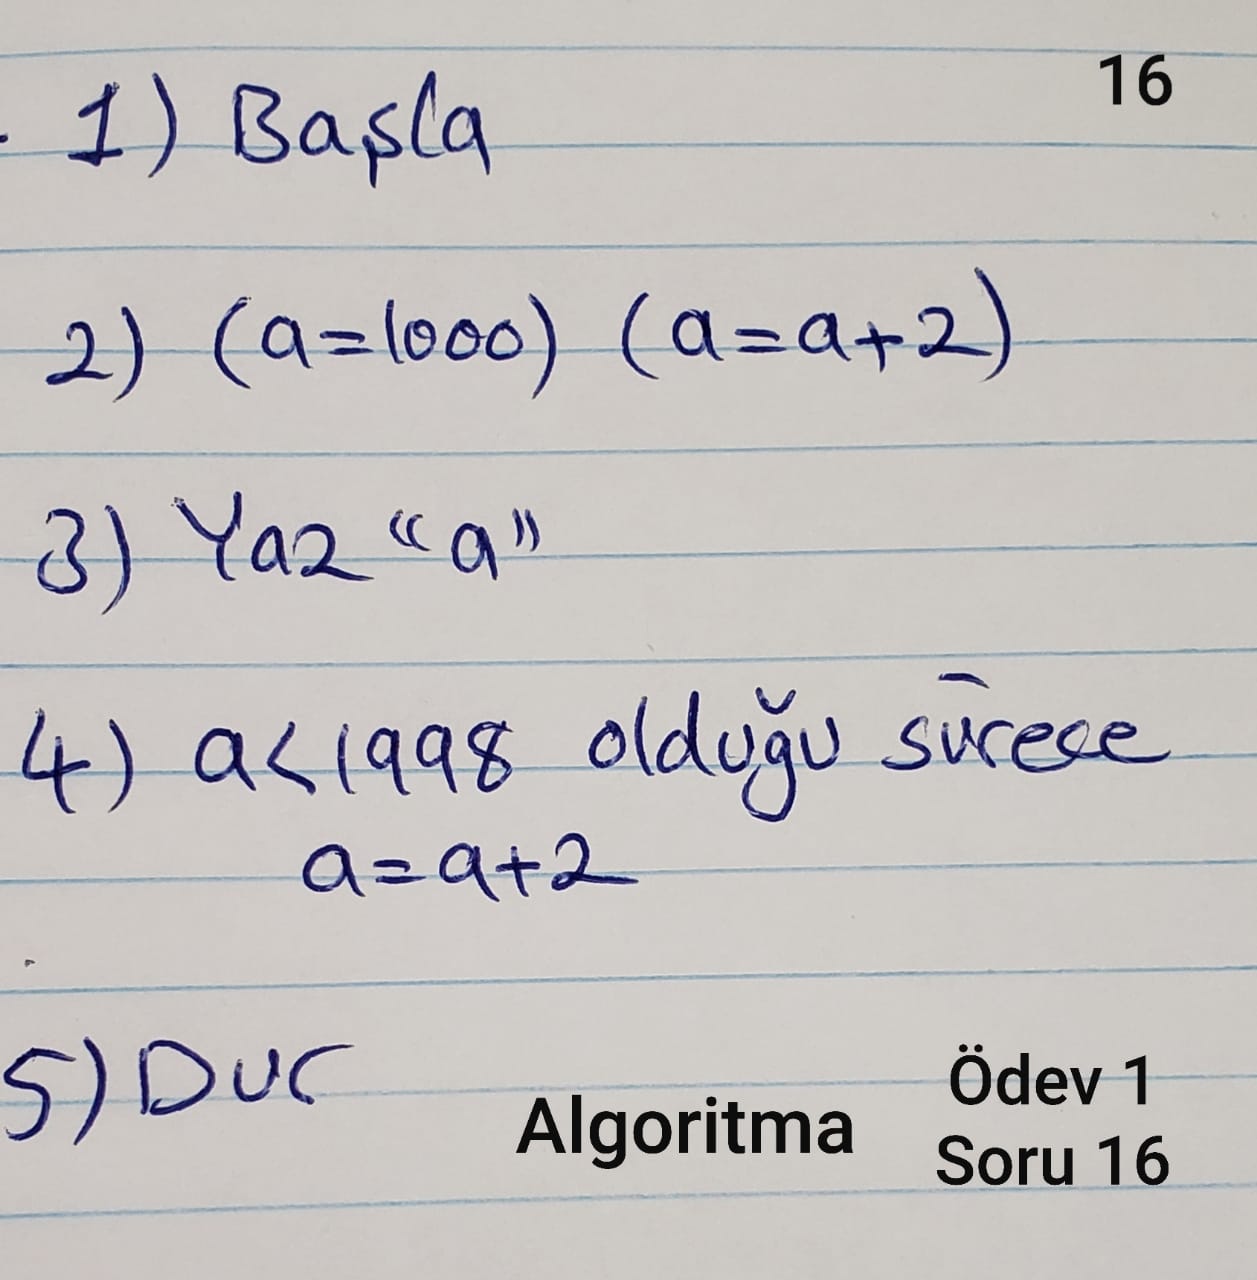 16
1) Başla
2) (a=1000) (a=a+2)
3) Yaz “a”
4) a<1998 olduğu sürece
a=a+2
5) Dur
Algoritma
Ödev 1
Soru 16